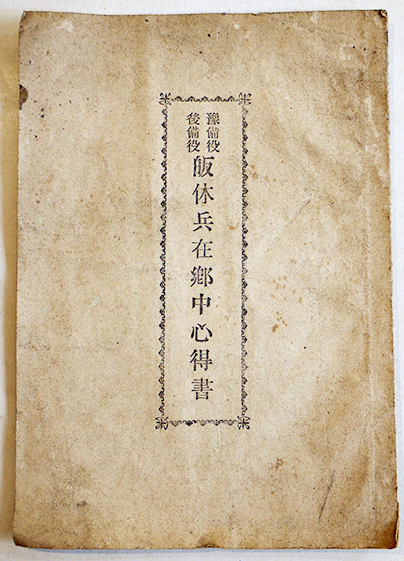 豫備役
後備役
皈休兵在鄕中心得書